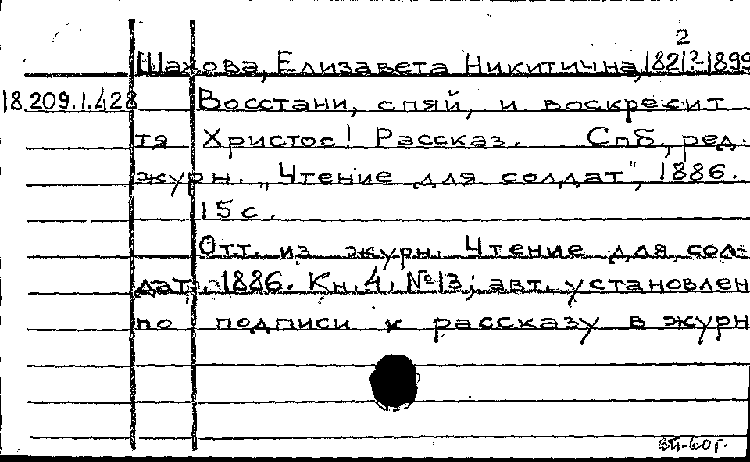 2
Шахова, Елизавета Никитична, 1821?-1899
18.209.1.428 Восстани, спяй, и воскресит
тя Христос! Рассказ. Спб, ред.
журн. „Чтение для солдат", 1886.
15 с.
Отт. из журн. Чтение для сол-
дат. 1886. Кн. 4. №13; авт. установлен
по подписи к рассказу в журн